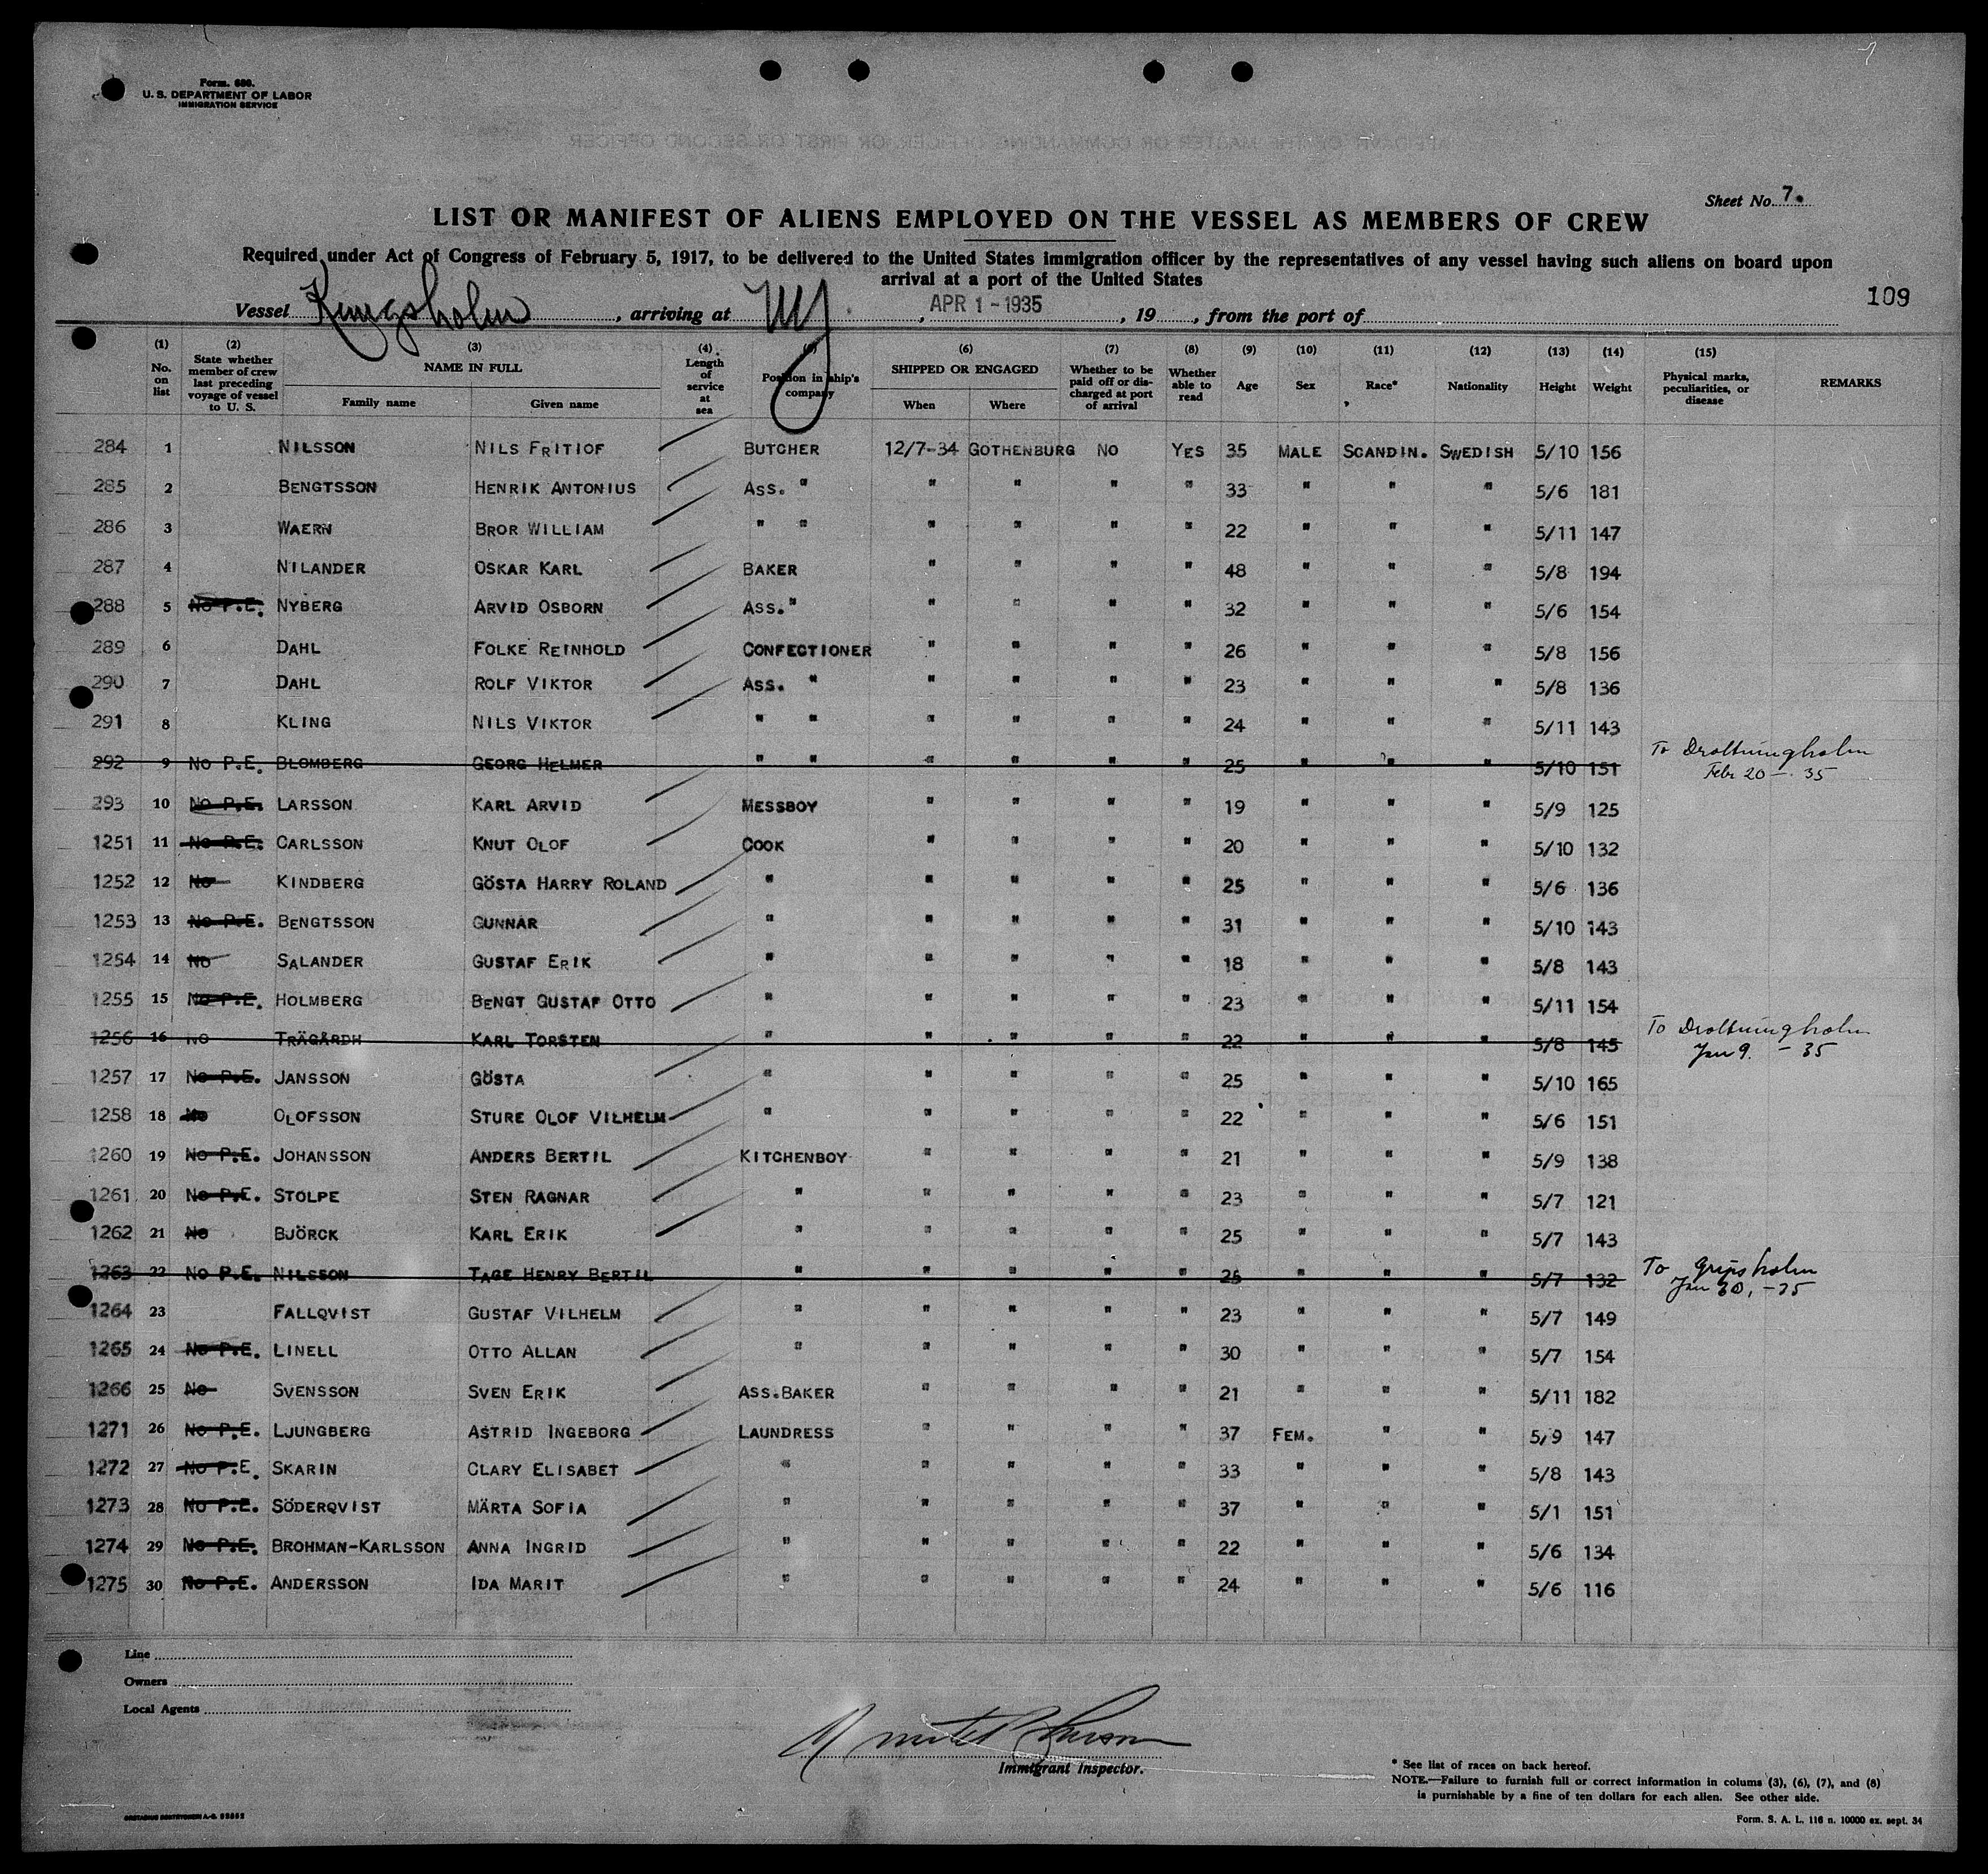 Form. 686.
U. S. DEPARTMENT OF LABOR
IMMIGRATION SERVICE
Sheet No. 7.
LIST OR MANIFEST OF ALIENS EMPLOYED ON THE VESSEL AS MEMBERS OF CREW
Required under Act of Congress of February 5, 1917, to be delivered to the United States immigration officer by the representatives of any vessel having such aliens on board upon
arrival at a port of the United States
109
Vessel Kungsholm, arriving at NY, APR 1-1935, 19, from the port of
(1) No. on list (2) State whether member of crew last preceding voyage of vessel to U. S. (3) NAME IN FULL Family name Given name (4) Length of service at sea (5) Position in ship's company (6) SHIPPED OR ENGAGED When Where (7) Whether to be paid off or discharged at port of arrival (8) Whether able to read (9) Age (10) Sex (11) Race* (12) Nationality (13) Height (14) Weight (15) Physical marks, peculiarities, or disease REMARKS
284 1 NILSSON NILS FRITIOF BUTCHER 12/7-34 GOTHENBURG NO YES 35 MALE SCANDIN. SWEDISH 5/10 156
285 2 BENGTSSON HENRIK ANTONIUS ASS. " " " " " 33 " " " 5/6 181
286 3 WAERN BROR WILLIAM " " " " " " 22 " " " 5/11 147
287 4 NILANDER OSKAR KARL BAKER " " " " 48 " " " 5/8 194
288 5 No P.E. NYBERG ARVID OSBORN ASS. " " " " " 32 " " " 5/6 154
289 6 DAHL FOLKE REINHOLD CONFECTIONER " " " " 26 " " " 5/8 156
290 7 DAHL ROLF VIKTOR ASS. " " " " " 23 " " " 5/8 136
291 8 KLING NILS VIKTOR " " " " " " 24 " " " 5/11 143
292 9 No P.E. BLOMBERG GEORG HELMER " " " " " " 25 " " " 5/10 151 To Drottningholm
Febr 20 - 35
293 10 No P.E. LARSSON KARL ARVID MESSBOY " " " " 19 " " " 5/9 125
1251 11 No P.E. CARLSSON KNUT OLOF COOK " " " " 20 " " " 5/10 132
1252 12 No KINDBERG GÖSTA HARRY ROLAND " " " " " 25 " " " 5/6 136
1253 13 No P.E. BENGTSSON GUNNAR " " " " " 31 " " " 5/10 143
1254 14 No SALANDER GUSTAF ERIK " " " " " 18 " " " 5/8 143
1255 15 No P.E. HOLMBERG BENGT GUSTAF OTTO " " " " " 23 " " " 5/11 154
1256 16 No TRÄGÅRDH KARL TORSTEN " " " " " 22 " " " 5/8 145 To Drottningholm
Jan 9. - 35
1257 17 No P.E. JANSSON GÖSTA " " " " " 25 " " " 5/10 165
1258 18 No OLOFSSON STURE OLOF VILHELM " " " " " 22 " " " 5/6 151
1260 19 No P.E. JOHANSSON ANDERS BERTIL KITCHENBOY " " " " 21 " " " 5/9 138
1261 20 No P.E. STOLPE STEN RAGNAR " " " " " 23 " " " 5/7 121
1262 21 No BJÖRCK KARL ERIK " " " " " 25 " " " 5/7 143
1263 22 No P.E. NILSSON TAGE HENRY BERTIL " " " " " 25 " " " 5/7 132 To Gripsholm
Jan 30, -35
1264 23 FALLQVIST GUSTAF VILHELM " " " " " 23 " " " 5/7 149
1265 24 No P.E. LINELL OTTO ALLAN " " " " " 30 " " " 5/7 154
1266 25 No SVENSSON SVEN ERIK ASS.BAKER " " " " 21 " " " 5/11 182
1271 26 No P.E. LJUNGBERG ASTRID INGEBORG LAUNDRESS " " " " 37 FEM. " " 5/9 147
1272 27 No P.E. SKARIN CLARY ELISABET " " " " " 33 " " " 5/8 143
1273 28 No P.E. SÖDERQVIST MÄRTA SOFIA " " " " " 37 " " " 5/1 151
1274 29 No P.E. BROHMAN-KARLSSON ANNA INGRID " " " " " 22 " " " 5/6 134
1275 30 No P.E. ANDERSSON IDA MARIT " " " " " 24 " " " 5/6 116
Line
Owners
Local Agents
Immigrant Inspector.
* See list of races on back hereof.
NOTE.—Failure to furnish full or correct information in colums (3), (6), (7), and (8)
is punishable by a fine of ten dollars for each alien. See other side.
Form. S. A. L. 116 n. 10000 ex. sept. 34